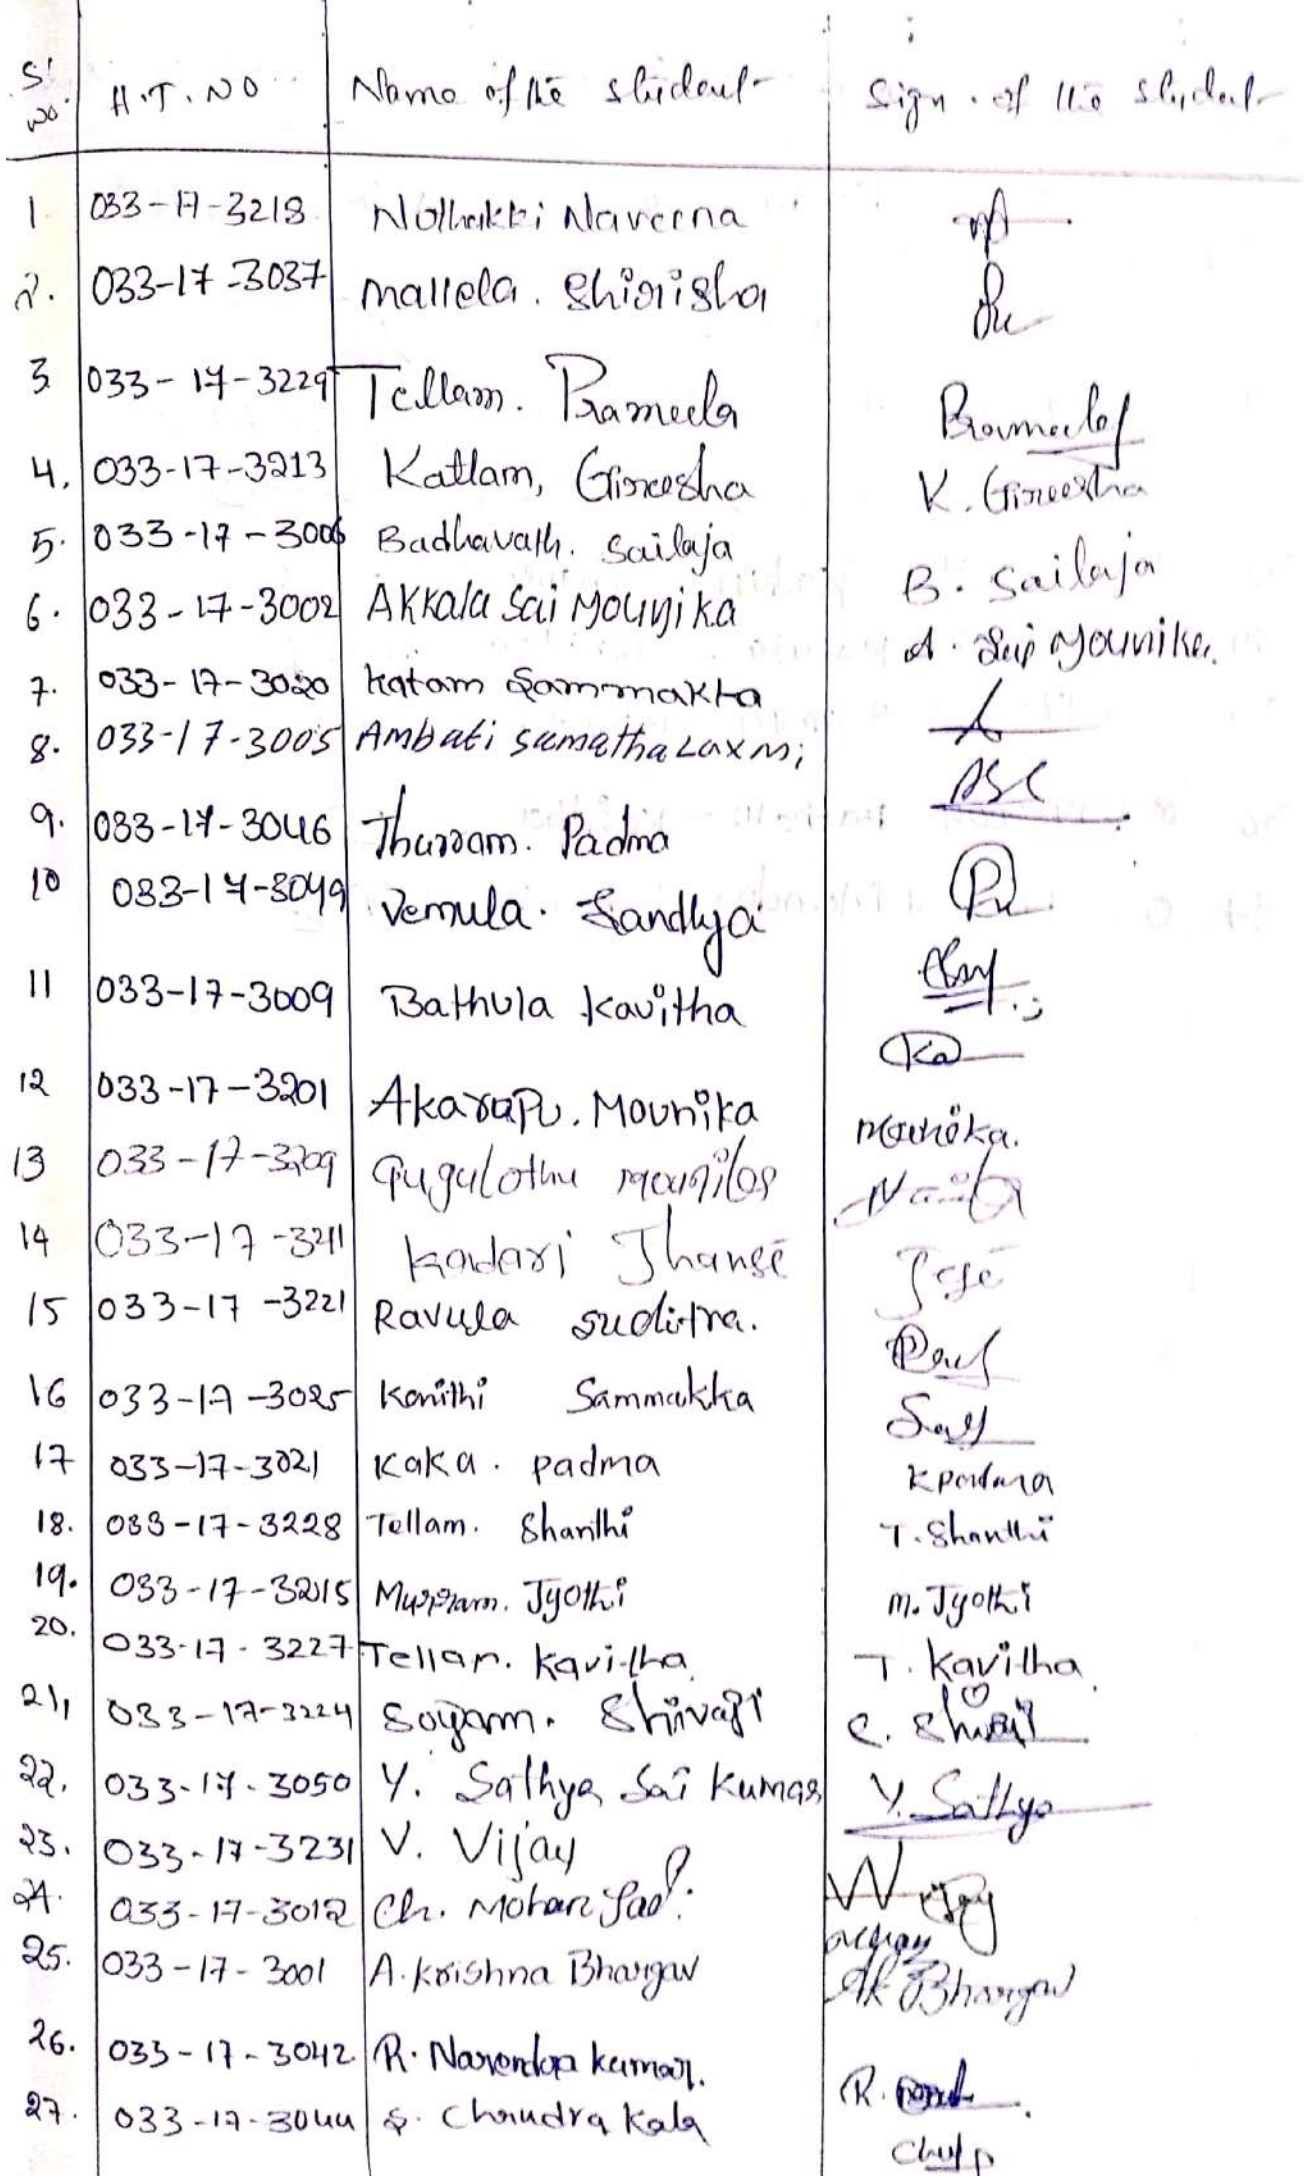 S' No. H.T. NO Name of the student Sign. of the student
1. 033-17-3218 Naveena
2. 033-17-3037 Mallela. Shirisha
3. 033-17-3229 Tellam. Prameela Prameela
4. 033-17-3213 Katlam, Gireesha K. Gireesha
5. 033-17-3006 Badhavath. Sailaja B. Sailaja
6. 033-17-3002 Akkala Sai Mounika A. Sai Mounika.
7. 033-17-3020 Katam Sammakka
8. 033-17-3005 Ambati Sumatha Laxmi ASL
9. 033-17-3046 Thurram. Padma
10 033-17-3049 Vemula. Sandhya
11 033-17-3009 Bathula Kavitha
Ka
12 033-17-3201 Akarapu. Mounika Mounika.
13 033-17-3209 Gugulothu
14 033-17-3211 Kadari Jhansi
15 033-17-3221 Ravula
16 033-17-3025 Konithi Sammakka
17 033-17-3021 Kaka. Padma K Padma
18. 033-17-3228 Tellam. Shanthi T. Shanthi
19. 033-17-3215 Murram. Jyothi M. Jyothi
20. 033-17-3227 Tellam. Kavitha T. Kavitha
21, 033-17-3224 Soyam. Shivaji
22. 033-17-3050 Y. Sathya Sai Kumar Y. Sathya
23. 033-17-3231 V. Vijay
24. 033-17-3012 Ch. Mohan
25. 033-17-3001 A. Krishna Bhargav AK Bhargav
26. 033-17-3042 R. Narendra Kumar. R.
27. 033-17-3044 S. Chandra Kala